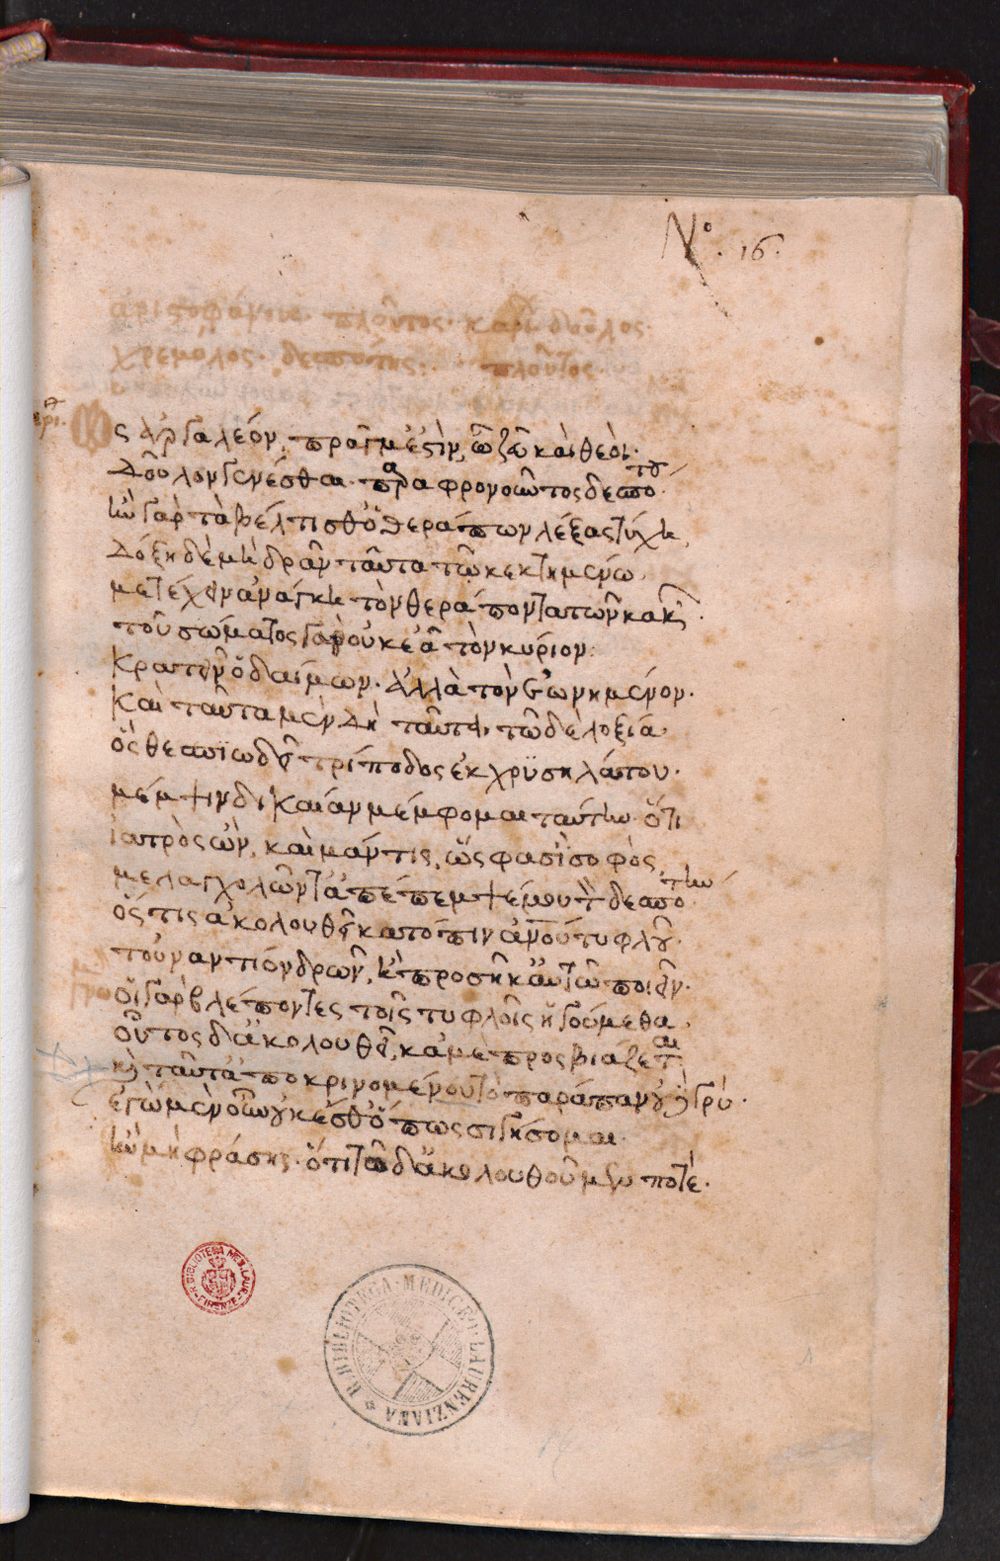 Nº. 16.
ἀριστοφάνους πλοῦτος· καρίων δοῦλος·
χρεμύλος· δεσπότης· πλοῦτος·
Ὡς ἀργαλέον πρᾶγμ' ἐστὶν, ὦ ζεῦ καὶ θεοί·
Δοῦλον γενέσθαι παραφρονοῦντος δεσπότου·
ἢν γὰρ τὰ βέλτισθ' ὁ θεράπων λέξας τύχη,
Δόξη δὲ μὴ δρᾶν ταῦτα τῶ κεκτημένω·
μετέχειν ἀνάγκη τὸν θεράποντα τῶν κακῶν·
τοῦ σώματος γὰρ οὐκ ἐᾶ τὸν κύριον·
Κρατεῖν ὁ δαίμων· ἀλλὰ τὸν ἐωνημένον·
Καὶ ταῦτα μὲν δὴ ταῦτα, τῶ δὲ λοξία·
ὃς θεσπιωδεῖ τρίποδος ἐκ χρυσηλάτου·
μέμψιν δικαίαν μέμφομαι ταύτην· ὅτι
ἰατρὸς ὢν, καὶ μάντις, ὥς φασὶ σοφὸς,
μελαγχολῶντ' ἀπέπεμψέ μου τὸν δεσπότην·
ὅστις ἀκολουθεῖ κατόπιν ἀνοῦ τυφλοῦ·
τοὐναντίον δρῶν, ἢ προσῆκ' αὐτῶ ποιεῖν·
οἱ γὰρ βλέποντες τοῖς τυφλοῖς ἡγούμεθα·
οὗτος δ' ἀκολουθεῖ, κἀμὲ προσβιάζεται
καὶ ταῦτ' ἀποκρινομένου τὸ παράπαν οὐδὲ γρύ·
ἐγὼ μὲν οὖν οὐκ ἔσθ' ὅπως σιγήσομαι·
ἢν μὴ φράσης· ὅτι τῶδ' ἀκολουθοῦμέν ποτε·
R. BIBLIOTECA MED. LAUR. FIRENZE
R. BIBLIOTECA MEDICEO LAURENZIANA